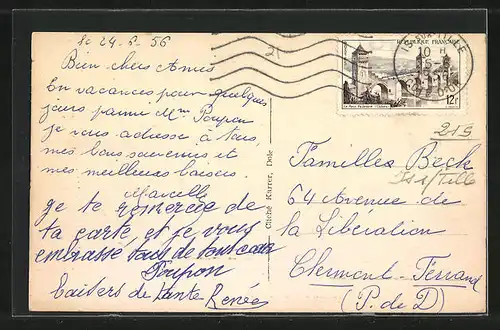 le 24-5-56
Bien chers Amis
En vacances pour quelques
jours parmi Mme Poupon
je vous adresse à tous,
mes bons souvenirs et
mes meilleurs baisers.
Marcelle
je te remercie de
ta carte et je vous
embrasse tous de tout cœur
Poupon
baisers de tante Renée
Cliché Karrer, Dole
IS-SUR-TILLE
10 H
COTE D'OR
REPUBLIQUE FRANÇAISE
12F
219
Familles Beck
Is s/Tille
64 Avenue de
la Libération
Clermont-Ferrand
(P. de D)